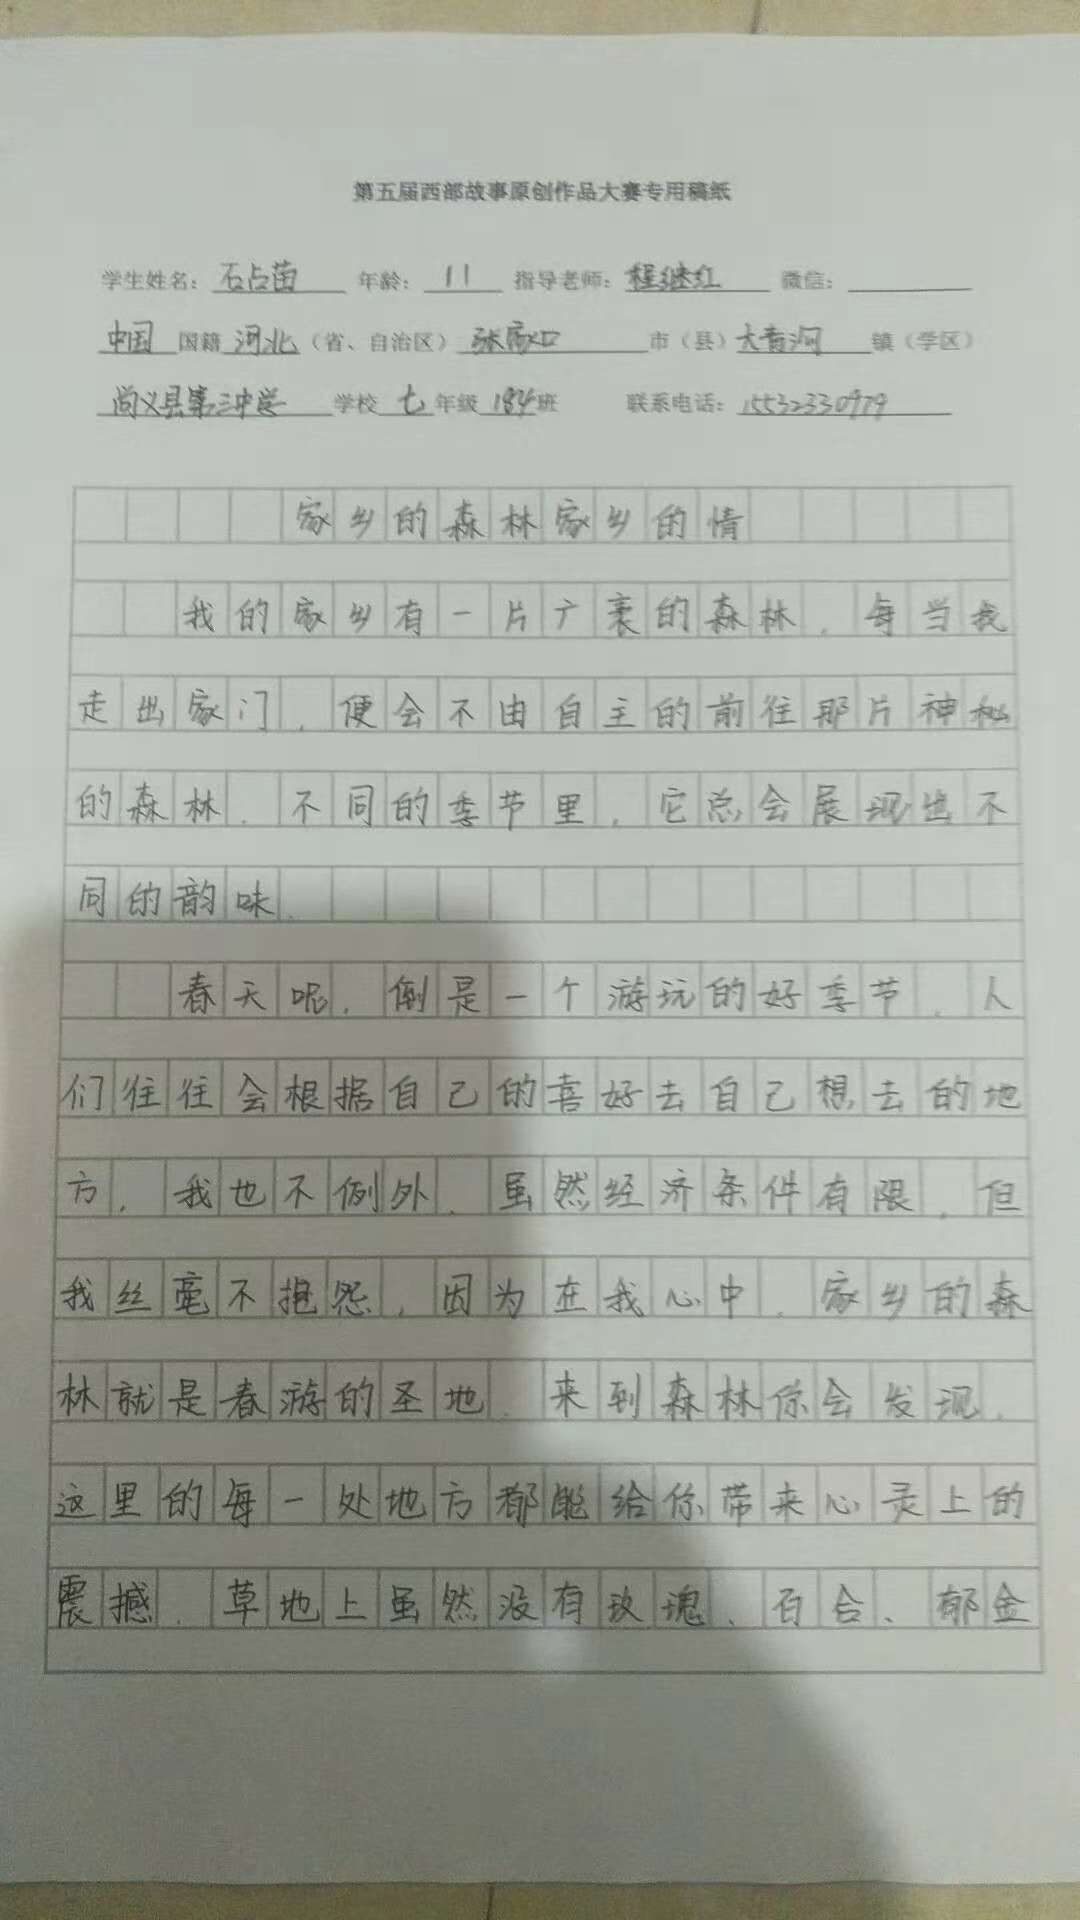 第五届西部故事原创作品大赛专用稿纸
学生姓名：石占茵 年龄：11 指导老师：程继红 微信：
中国国籍 河北（省、自治区）张家口市（县）大青河镇（学区）
尚义县第三中学学校 七年级 184班 联系电话：15532330979
家乡的森林家乡的情
我的家乡有一片广袤的森林，每当我
走出家门，便会不由自主的前往那片神秘
的森林．不同的季节里，它总会展现出不
同的韵味．
春天呢，倒是一个游玩的好季节，人
们往往会根据自己的喜好去自己想去的地
方，我也不例外．虽然经济条件有限，但
我丝毫不抱怨，因为在我心中，家乡的森
林就是春游的圣地．来到森林你会发现，
这里的每一处地方都能给你带来心灵上的
震撼．草地上虽然没有玫瑰、百合、郁金